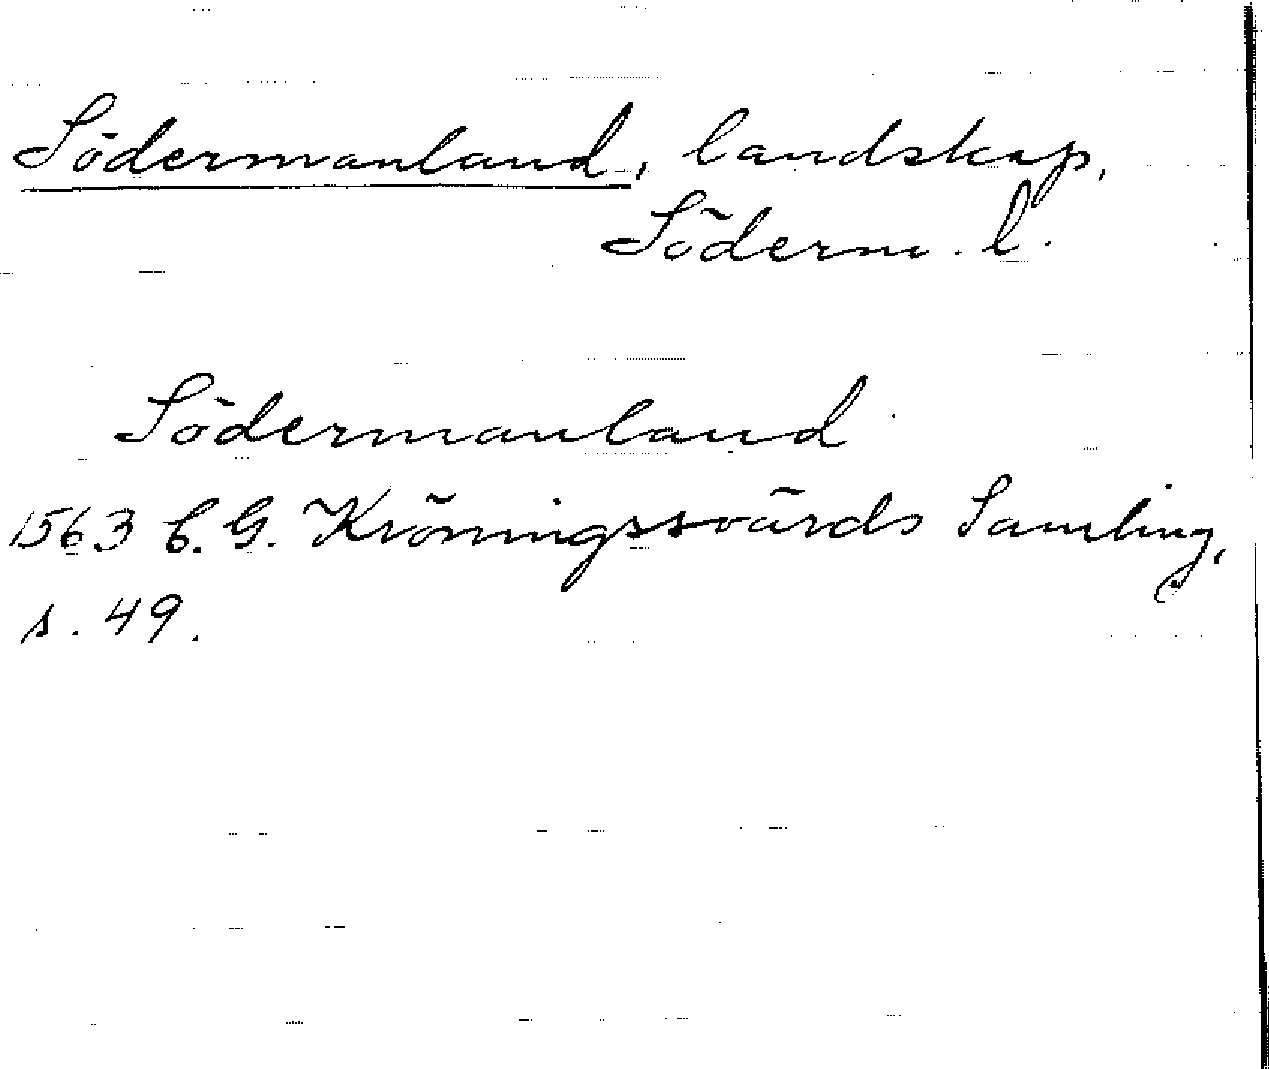 Södermanland, landskap,
Söderm. l.
Södermanland
1563 C. G. Kröningssvärds Samling,
s. 49.